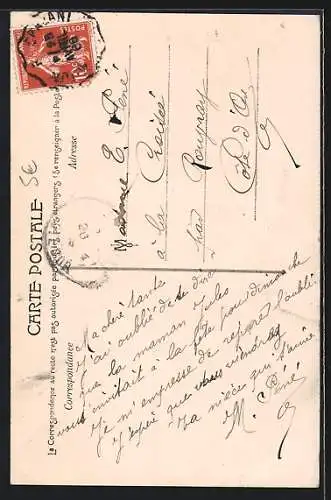 CARTE POSTALE
La Correspondance au recto n'est pas autorisée par tous les pays étrangers (Se renseigner à la Poste)
Correspondance
Adresse
E. Péné
à la Croisée
par Pougray
Côte d'Or
Ma chère tante
J'ai oublié de te dire
que la maman Jules
vous invitait à la fête pour dimanche
Je m'empresse de réparer l'oubli
J'espère que vous viendrez
Ta nièce qui t'aime
M. Péné
POSTES